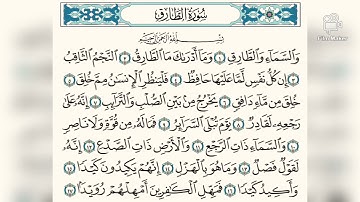 سُورَةُ الطَّارِقِ
بِسْمِ اللَّهِ الرَّحْمَٰنِ الرَّحِيمِ
وَالسَّمَاءِ وَالطَّارِقِ ١ وَمَا أَدْرَىٰكَ مَا الطَّارِقُ ٢ النَّجْمُ الثَّاقِبُ
٣ إِن كُلُّ نَفْسٍ لَّمَّا عَلَيْهَا حَافِظٌ ٤ فَلْيَنظُرِ الْإِنسَٰنُ مِمَّ خُلِقَ ٥
خُلِقَ مِن مَّاءٍ دَافِقٍ ٦ يَخْرُجُ مِن بَيْنِ الصُّلْبِ وَالتَّرَائِبِ ٧ إِنَّهُ عَلَىٰ
رَجْعِهِ لَقَادِرٌ ٨ يَوْمَ تُبْلَى السَّرَائِرُ ٩ فَمَا لَهُ مِن قُوَّةٍ وَلَا نَاصِرٍ
١٠ وَالسَّمَاءِ ذَاتِ الرَّجْعِ ١١ وَالْأَرْضِ ذَاتِ الصَّدْعِ ١٢ إِنَّهُ
لَقَوْلٌ فَصْلٌ ١٣ وَمَا هُوَ بِالْهَزْلِ ١٤ إِنَّهُمْ يَكِيدُونَ كَيْدًا
١٥ وَأَكِيدُ كَيْدًا ١٦ فَمَهِّلِ الْكَٰفِرِينَ أَمْهِلْهُمْ رُوَيْدًا ١٧